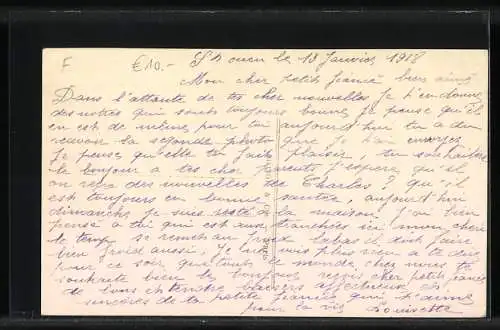 F €10.- St Ouen le 13 Janvier 1918
Mon cher petit fiancé bien aimé
Dans l'attente de tes cher nouvelles je t'en donne
des notres qui sont toujours bonne je pense qu'il
en est de même pour toi aujourd'hui tu a du
recevoir la seconde photo que je t'ai envoyer
je pense qu'elle ta fait plaisir tu souhaitera
le bonjour a tes cher parents j'espère qu'il
on reçu des nouvelles de Charles? qu'il
est toujours en bonne santer, aujourd'hui
dimanche je suis resté a la maison j'ai bien
pensé a toi qui est aux tranchées ici mon cheri
le temp se remet au froid labas il doit faire
bien froid aussi, je ne vois plus rien a te dire
pour ce soir que tout le monde chez nous te
souhaite bien le bonjour reçois cher petit fiancé
de bons et tendre baisers affectueux et
sincères de ta petite fiancée qui t'aime
pour la vie Louisette